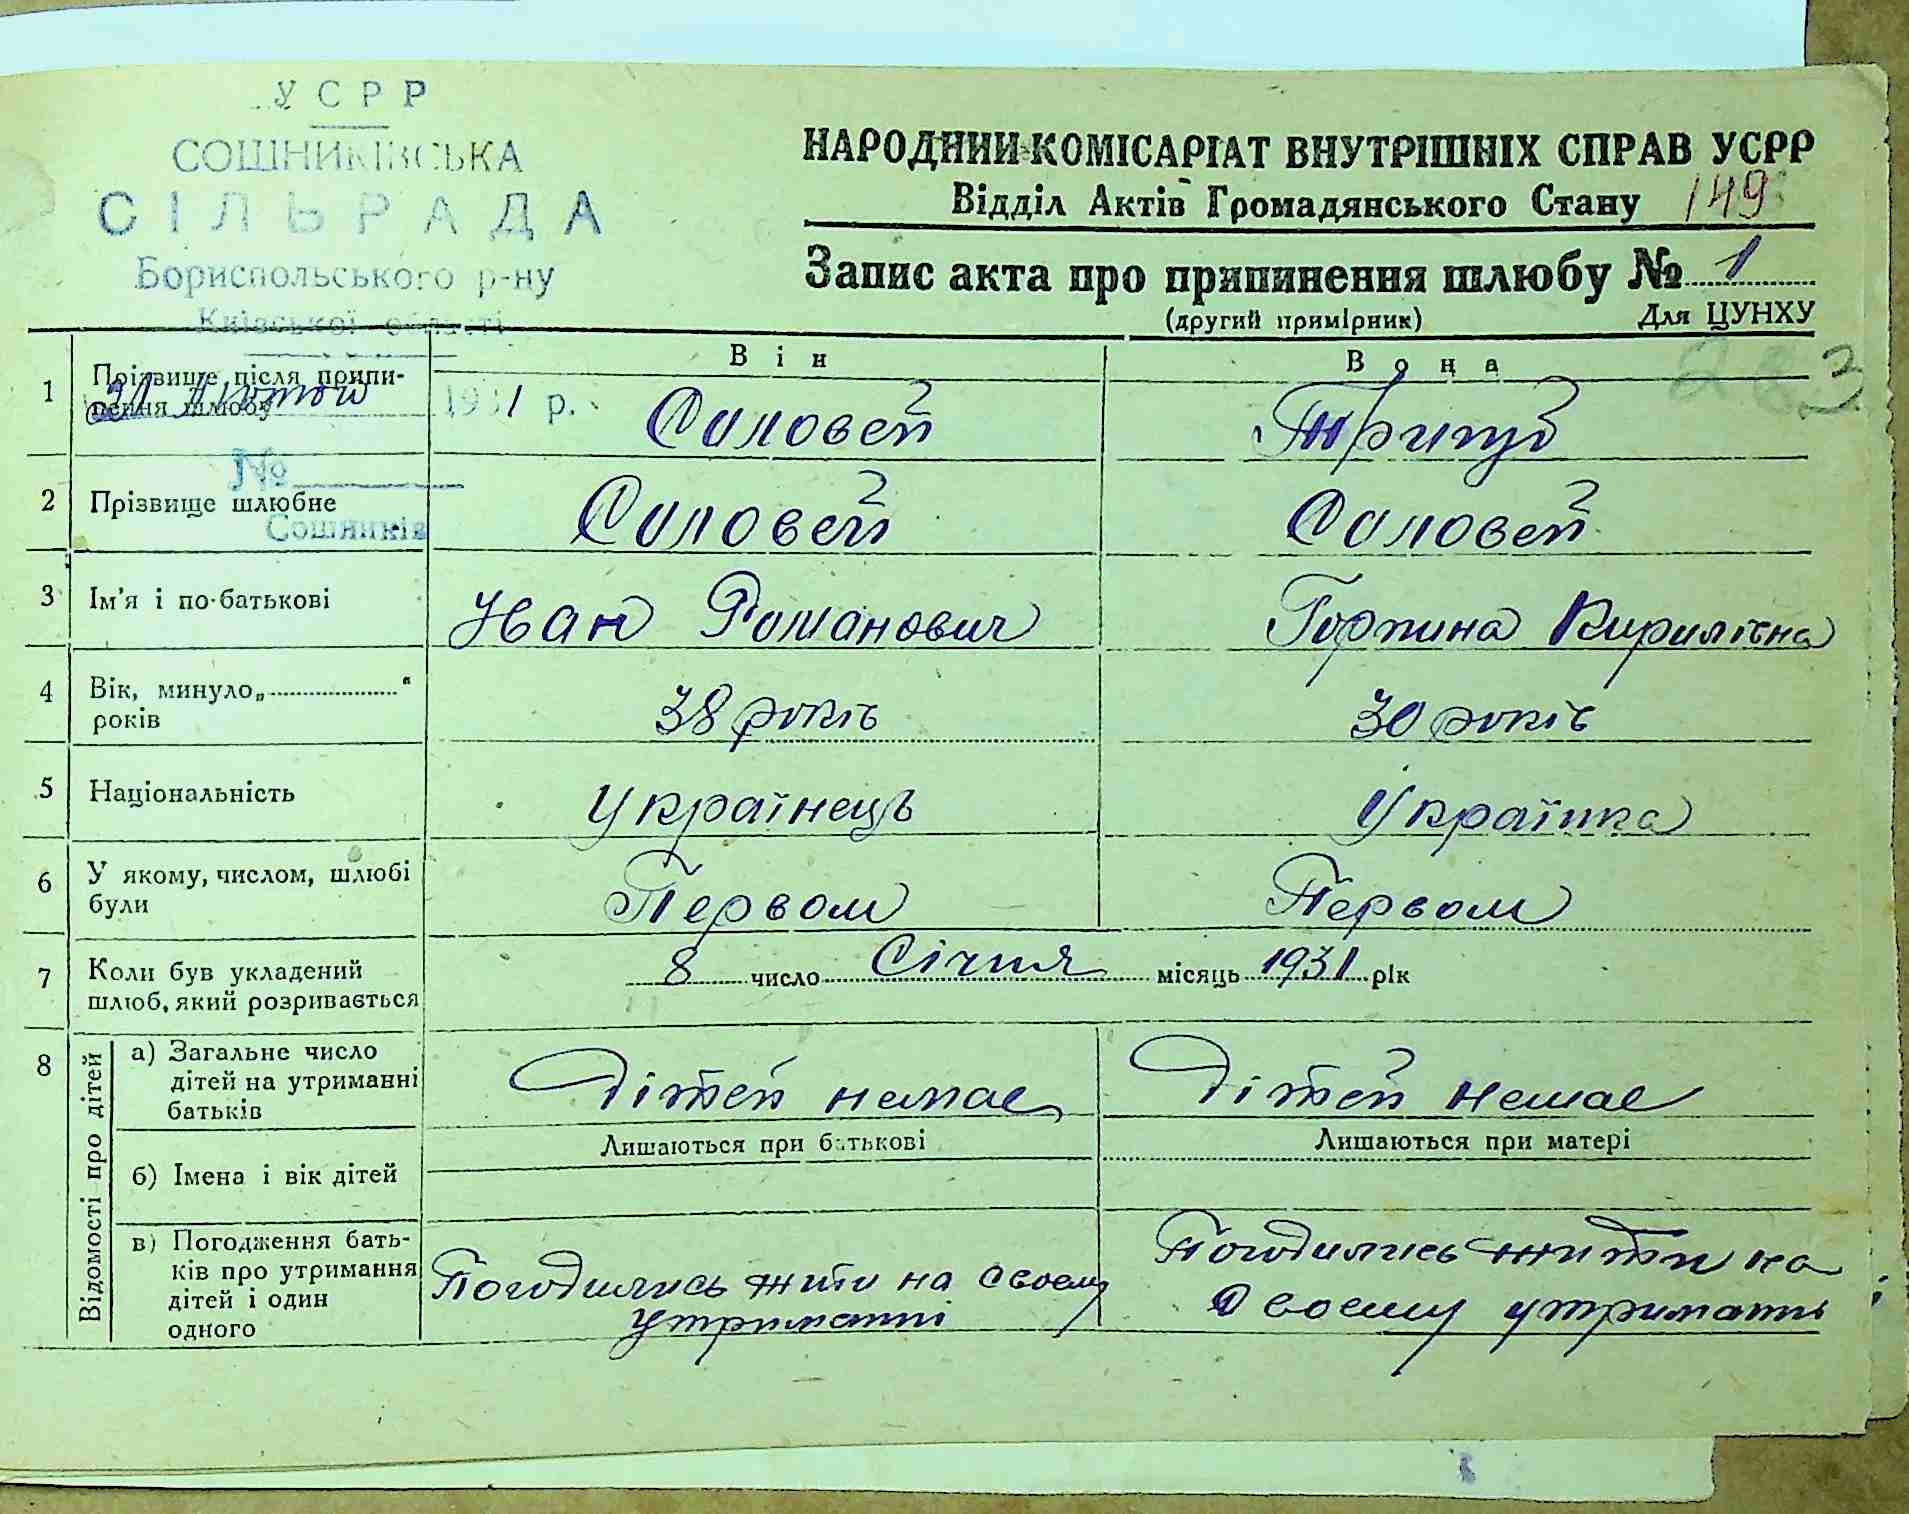 УСРР
СОШНИКІВСЬКА
СІЛЬРАДА
Бориспольського р-ну
Київської області
1931 р.
№
Сошників
НАРОДНИЙ КОМІСАРІАТ ВНУТРІШНІХ СПРАВ УСРР
Відділ Актів Громадянського Стану 149
Запис акта про припинення шлюбу № 1
(другий примірник) Для ЦУНХУ
283
Він Вона
1 Прізвище після припинення шлюбу Соловей Трипуб
2 Прізвище шлюбне Соловей Соловей
3 Ім'я і по-батькові Иван Романович Горпина Кирилівна
4 Вік, минуло „ “
років 38 років 30 років
5 Національність Українець Українка
6 У якому, числом, шлюбі
були Первом Первом
7 Коли був укладений
шлюб, який розривається 8 число Січня місяць 1931 рік
8 Відомості про дітей
а) Загальне число
дітей на утриманні
батьків Дітей немає Дітей немає
Лишаються при батькові Лишаються при матері
б) Імена і вік дітей
в) Погодження бать-
ків про утримання
дітей і один
одного
Погодились жити на своему
утриманні
Погодились жити на
Своему утриманні